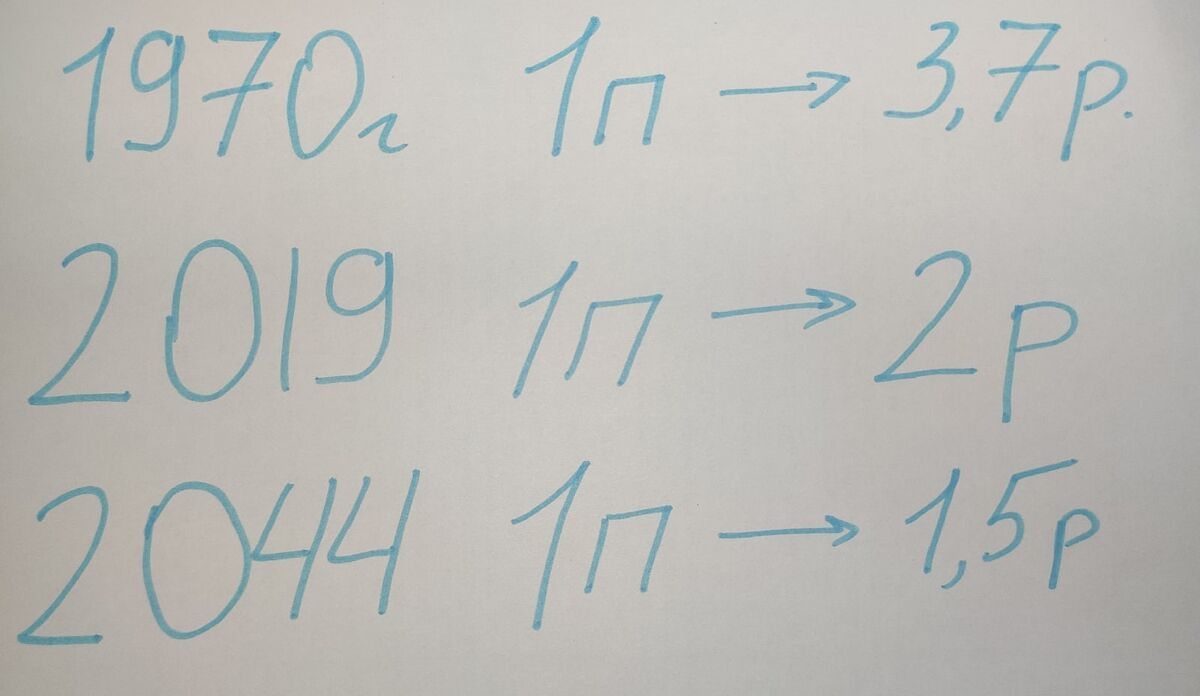 1970г 1п → 3,7р.
2019 1п → 2р
2044 1п → 1,5р